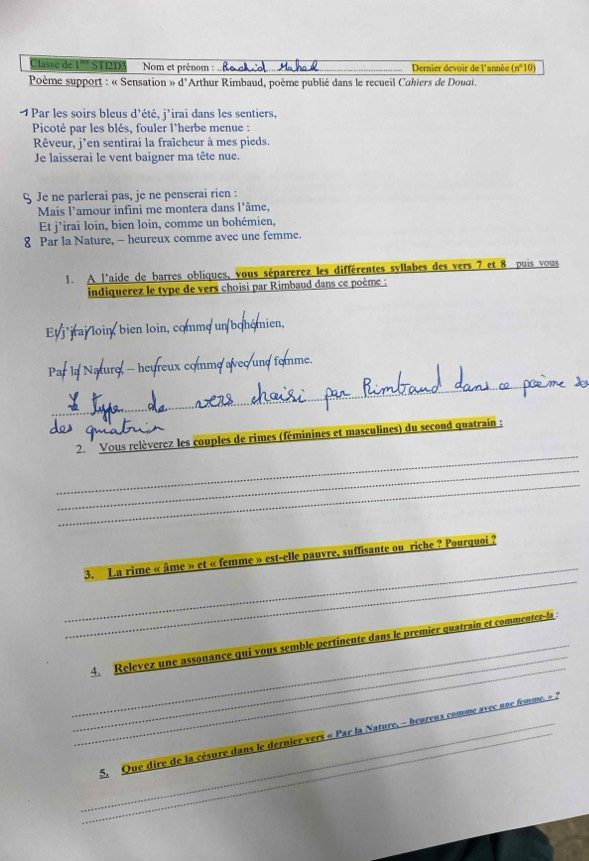 Classe de 1ère STI2D3 Nom et prénom : Rachid Mahek Dernier devoir de l'année (n°10)
Poème support : « Sensation » d'Arthur Rimbaud, poème publié dans le recueil Cahiers de Douai.
1 Par les soirs bleus d'été, j'irai dans les sentiers,
Picoté par les blés, fouler l'herbe menue :
Rêveur, j'en sentirai la fraîcheur à mes pieds.
Je laisserai le vent baigner ma tête nue.
5 Je ne parlerai pas, je ne penserai rien :
Mais l'amour infini me montera dans l'âme,
Et j'irai loin, bien loin, comme un bohémien,
8 Par la Nature, – heureux comme avec une femme.
1. A l'aide de barres obliques, vous séparerez les différentes syllabes des vers 7 et 8 puis vous
indiquerez le type de vers choisi par Rimbaud dans ce poème :
Et/j'irai/loin/, bien loin, comme/un/bohémien,
Par la Nature, – heureux comme avec une femme.
type de vers choisi par Rimbaud dans ce poème
des quatrin
2. Vous relèverez les couples de rimes (féminines et masculines) du second quatrain :
3. La rime « âme » et « femme » est-elle pauvre, suffisante ou riche ? Pourquoi ?
4. Relevez une assonance qui vous semble pertinente dans le premier quatrain et commentez-la :
5. Que dire de la césure dans le dernier vers « Par la Nature, – heureux comme avec une femme. » ?